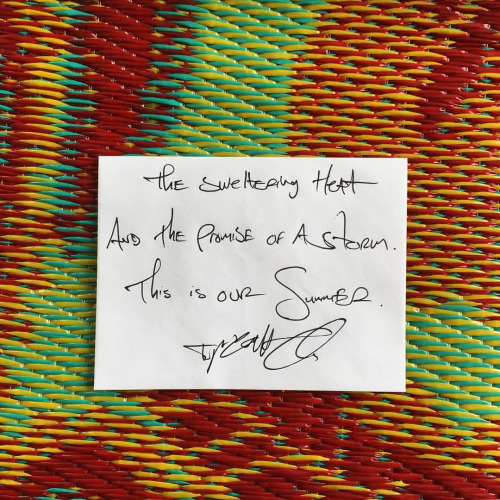 The sweltering Heat
And the Promise of A Storm.
This is our Summer.